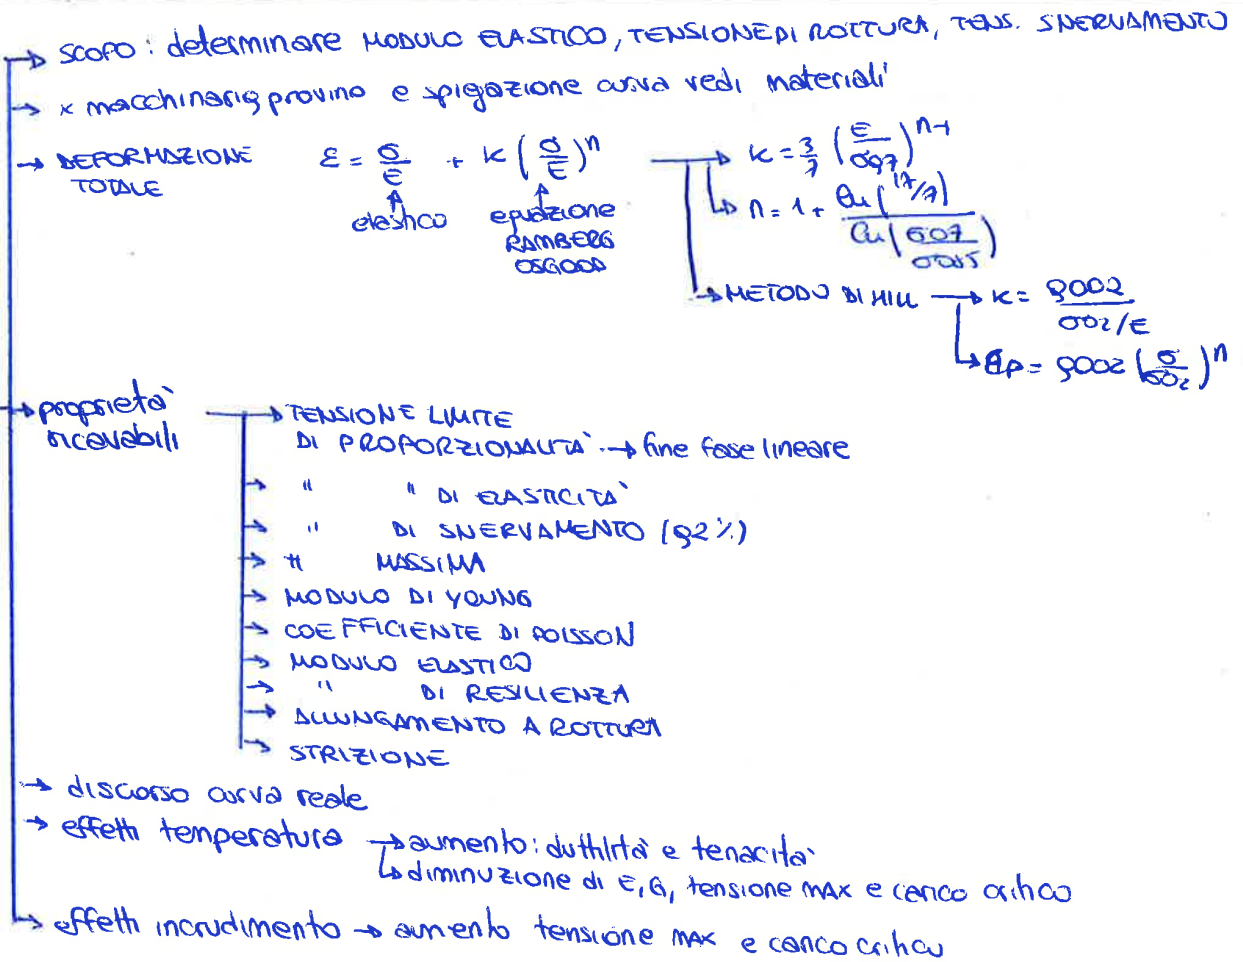 → SCOPO : determinare MODULO ELASTICO, TENSIONE DI ROTTURA, TENS. SNERVAMENTO
→ x macchinario, provino e spigazione curva vedi materiali
→ DEFORMAZIONE TOTALE ε = σ/E + K (σ/E)^n → K = 3/7 (E/σ0,7)^n-1
elastico equazione RAMBERG OSGOOD
→ n = 1 + ln(17/7) / ln(σ07/σ085)
→ METODO DI HILL → K = 0,002 / σ02/E
→ εp = 0,002 (σ/σ02)^n
→ proprietà ricavabili → TENSIONE LIMITE
DI PROPORZIONALITÀ → fine fase lineare
→ " " DI ELASTICITÀ
→ " DI SNERVAMENTO (0,2%)
→ " MASSIMA
→ MODULO DI YOUNG
→ COEFFICIENTE DI POISSON
→ MODULO ELASTICO
→ " DI RESILIENZA
→ ALLUNGAMENTO A ROTTURA
→ STRIZIONE
→ discorso curva reale
→ effetti temperatura → aumento: duttilità e tenacità
→ diminuzione di E, G, tensione MAX e carico critico
→ effetti incrudimento → aumento tensione MAX e carico critico